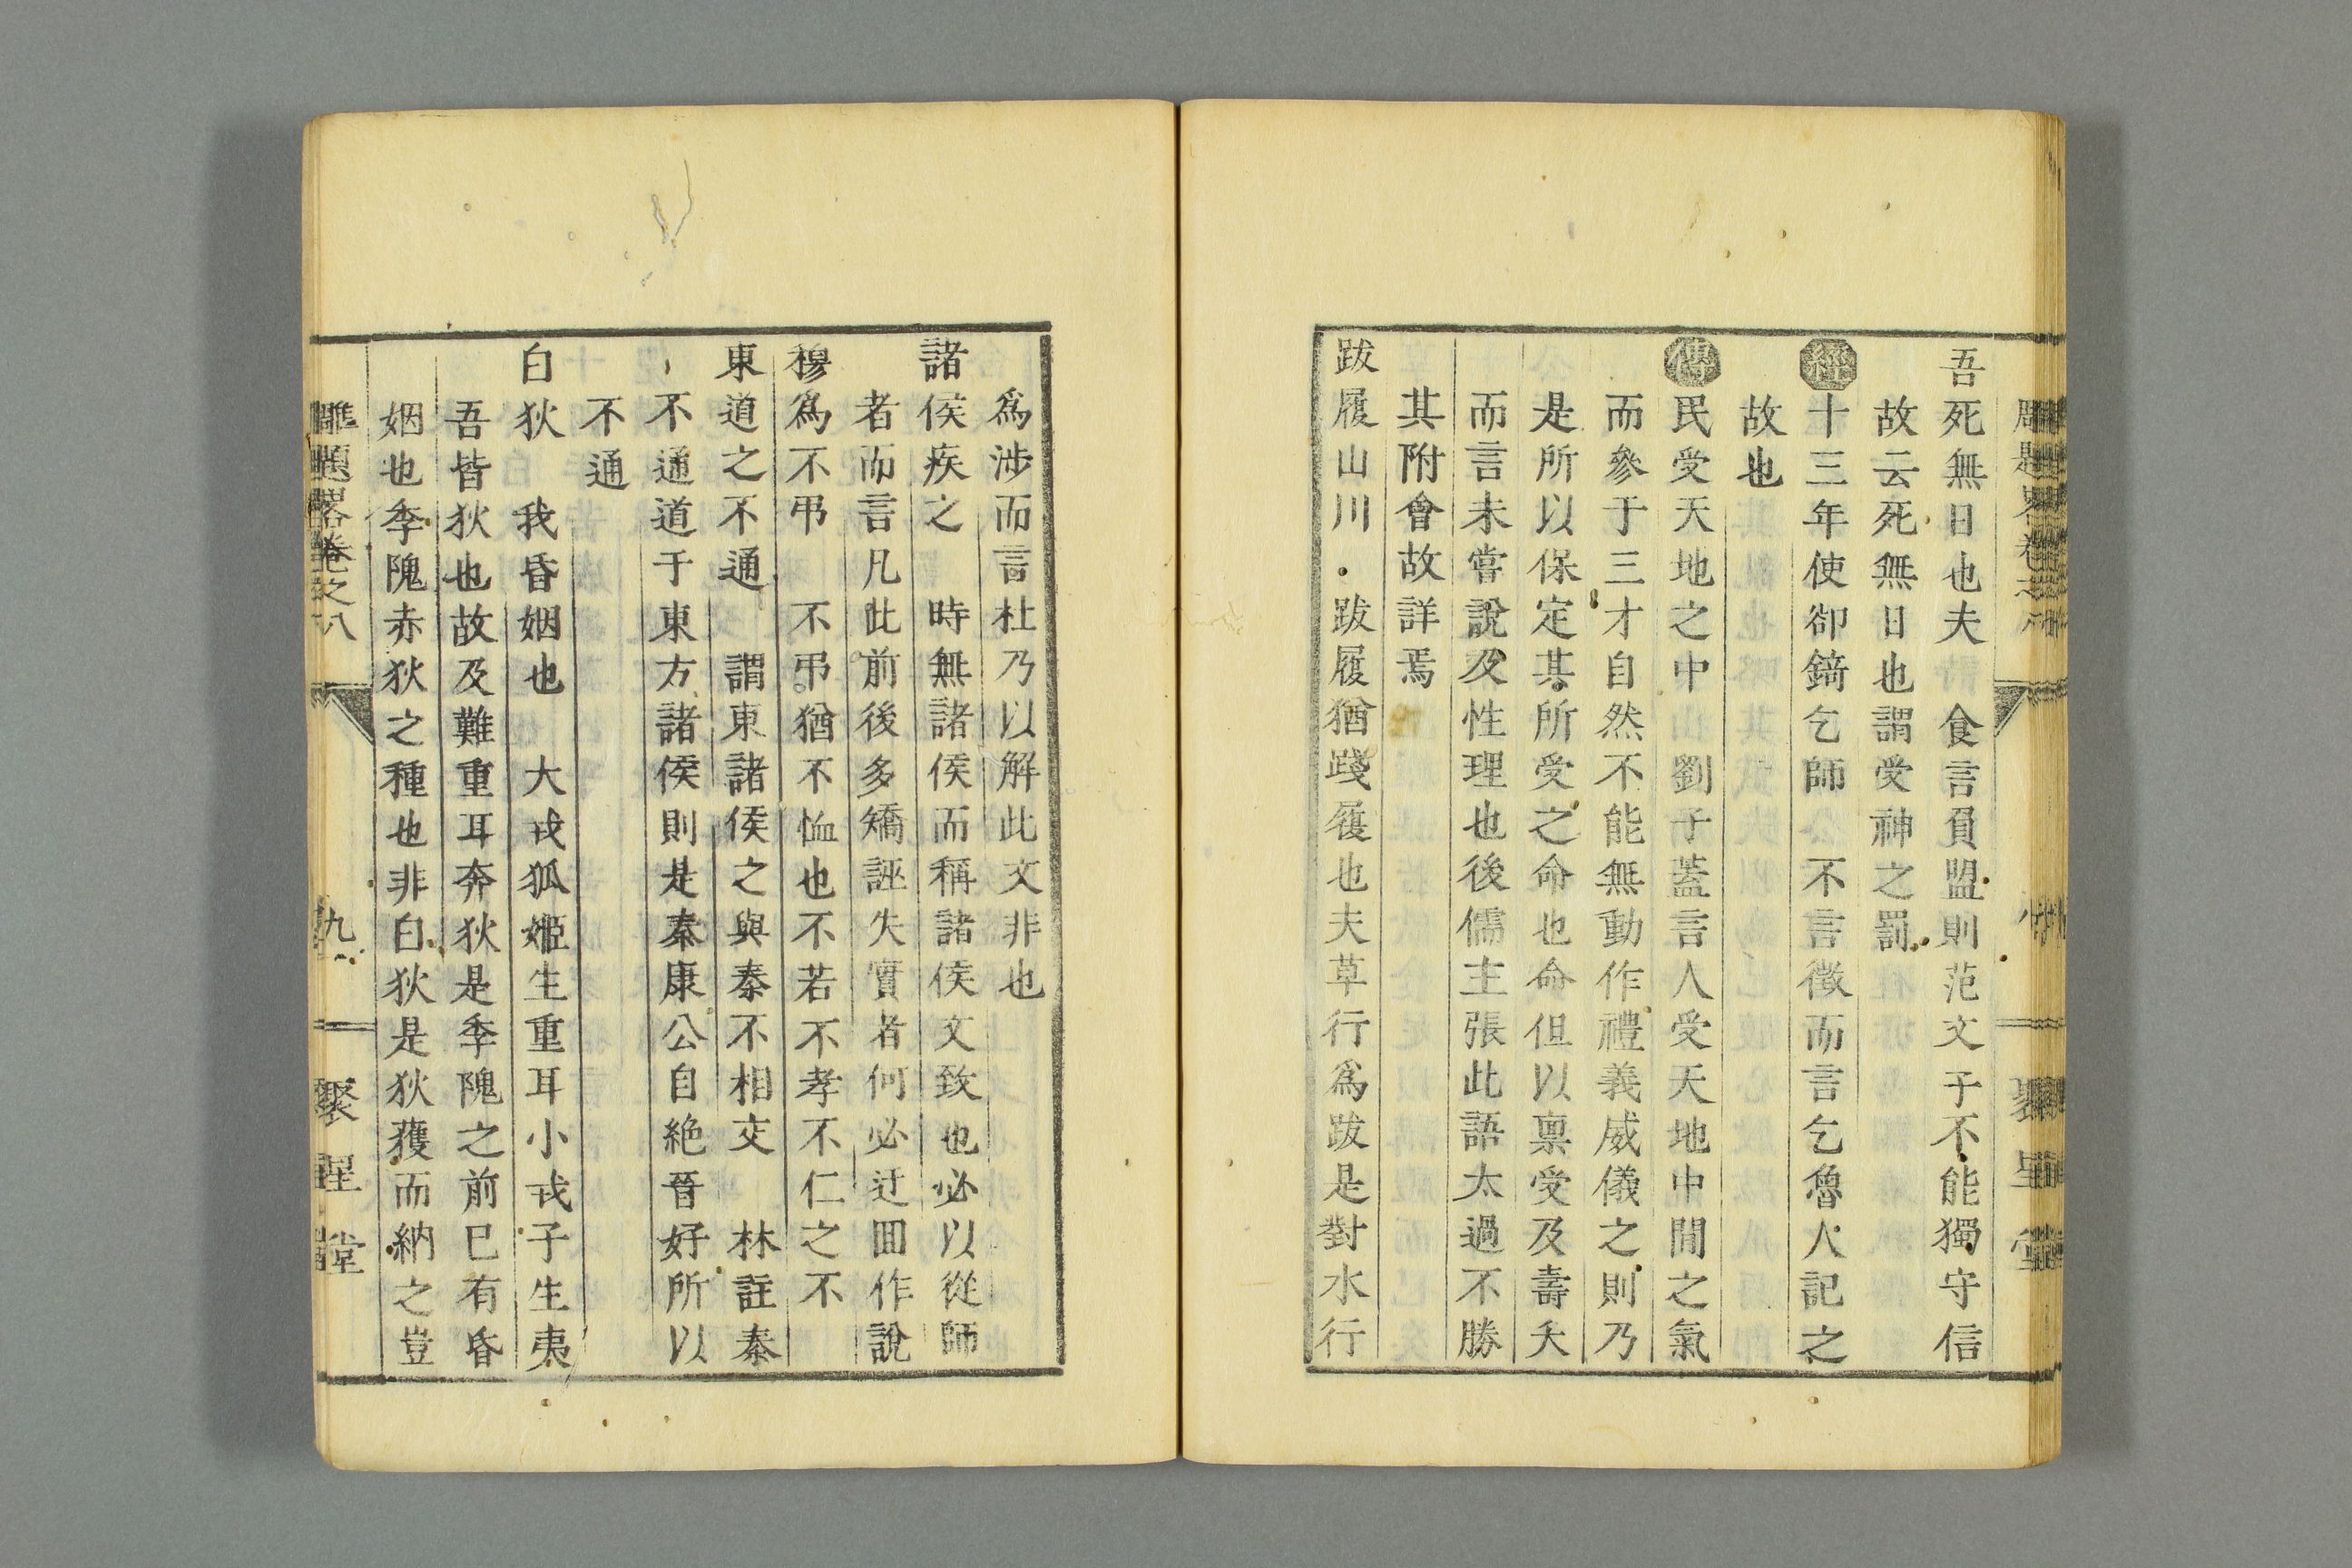 吾死無日也夫　食言負盟則范文子不能獨守信
故云死無日也謂受神之罰
經十三年使郤錡乞師　不言徵而言乞魯人記之
故也
傳民受天地之中　劉子蓋言人受天地中間之氣
而參于三才自然不能無動作禮義威儀之則乃
是所以保定其所受之命也命但以稟受及壽夭
而言未嘗說及性理也後儒主張此語太過不勝
其附會故詳焉
跋履山川．跋履猶踐履也夫草行爲跋是對水行
爲涉而言杜乃以解此文非也
諸侯疾之　時無諸侯而稱諸侯文致也必以從師
者而言凡此前後多矯誣失實者何必迂囬作說
穆爲不弔　不弔猶不恤也不若不孝不仁之不
東道之不通　謂東諸侯之與秦不相交　林註秦
不通道于東方諸侯則是秦康公自絶晉好所以
不通
白狄　我昏姻也　大戎狐姬生重耳小戎子生夷
吾皆狄也故及難重耳奔狄是季隗之前已有昏
姻也季隗赤狄之種也非白狄是狄獲而納之豈
雕題畧卷之八　九　聚星堂